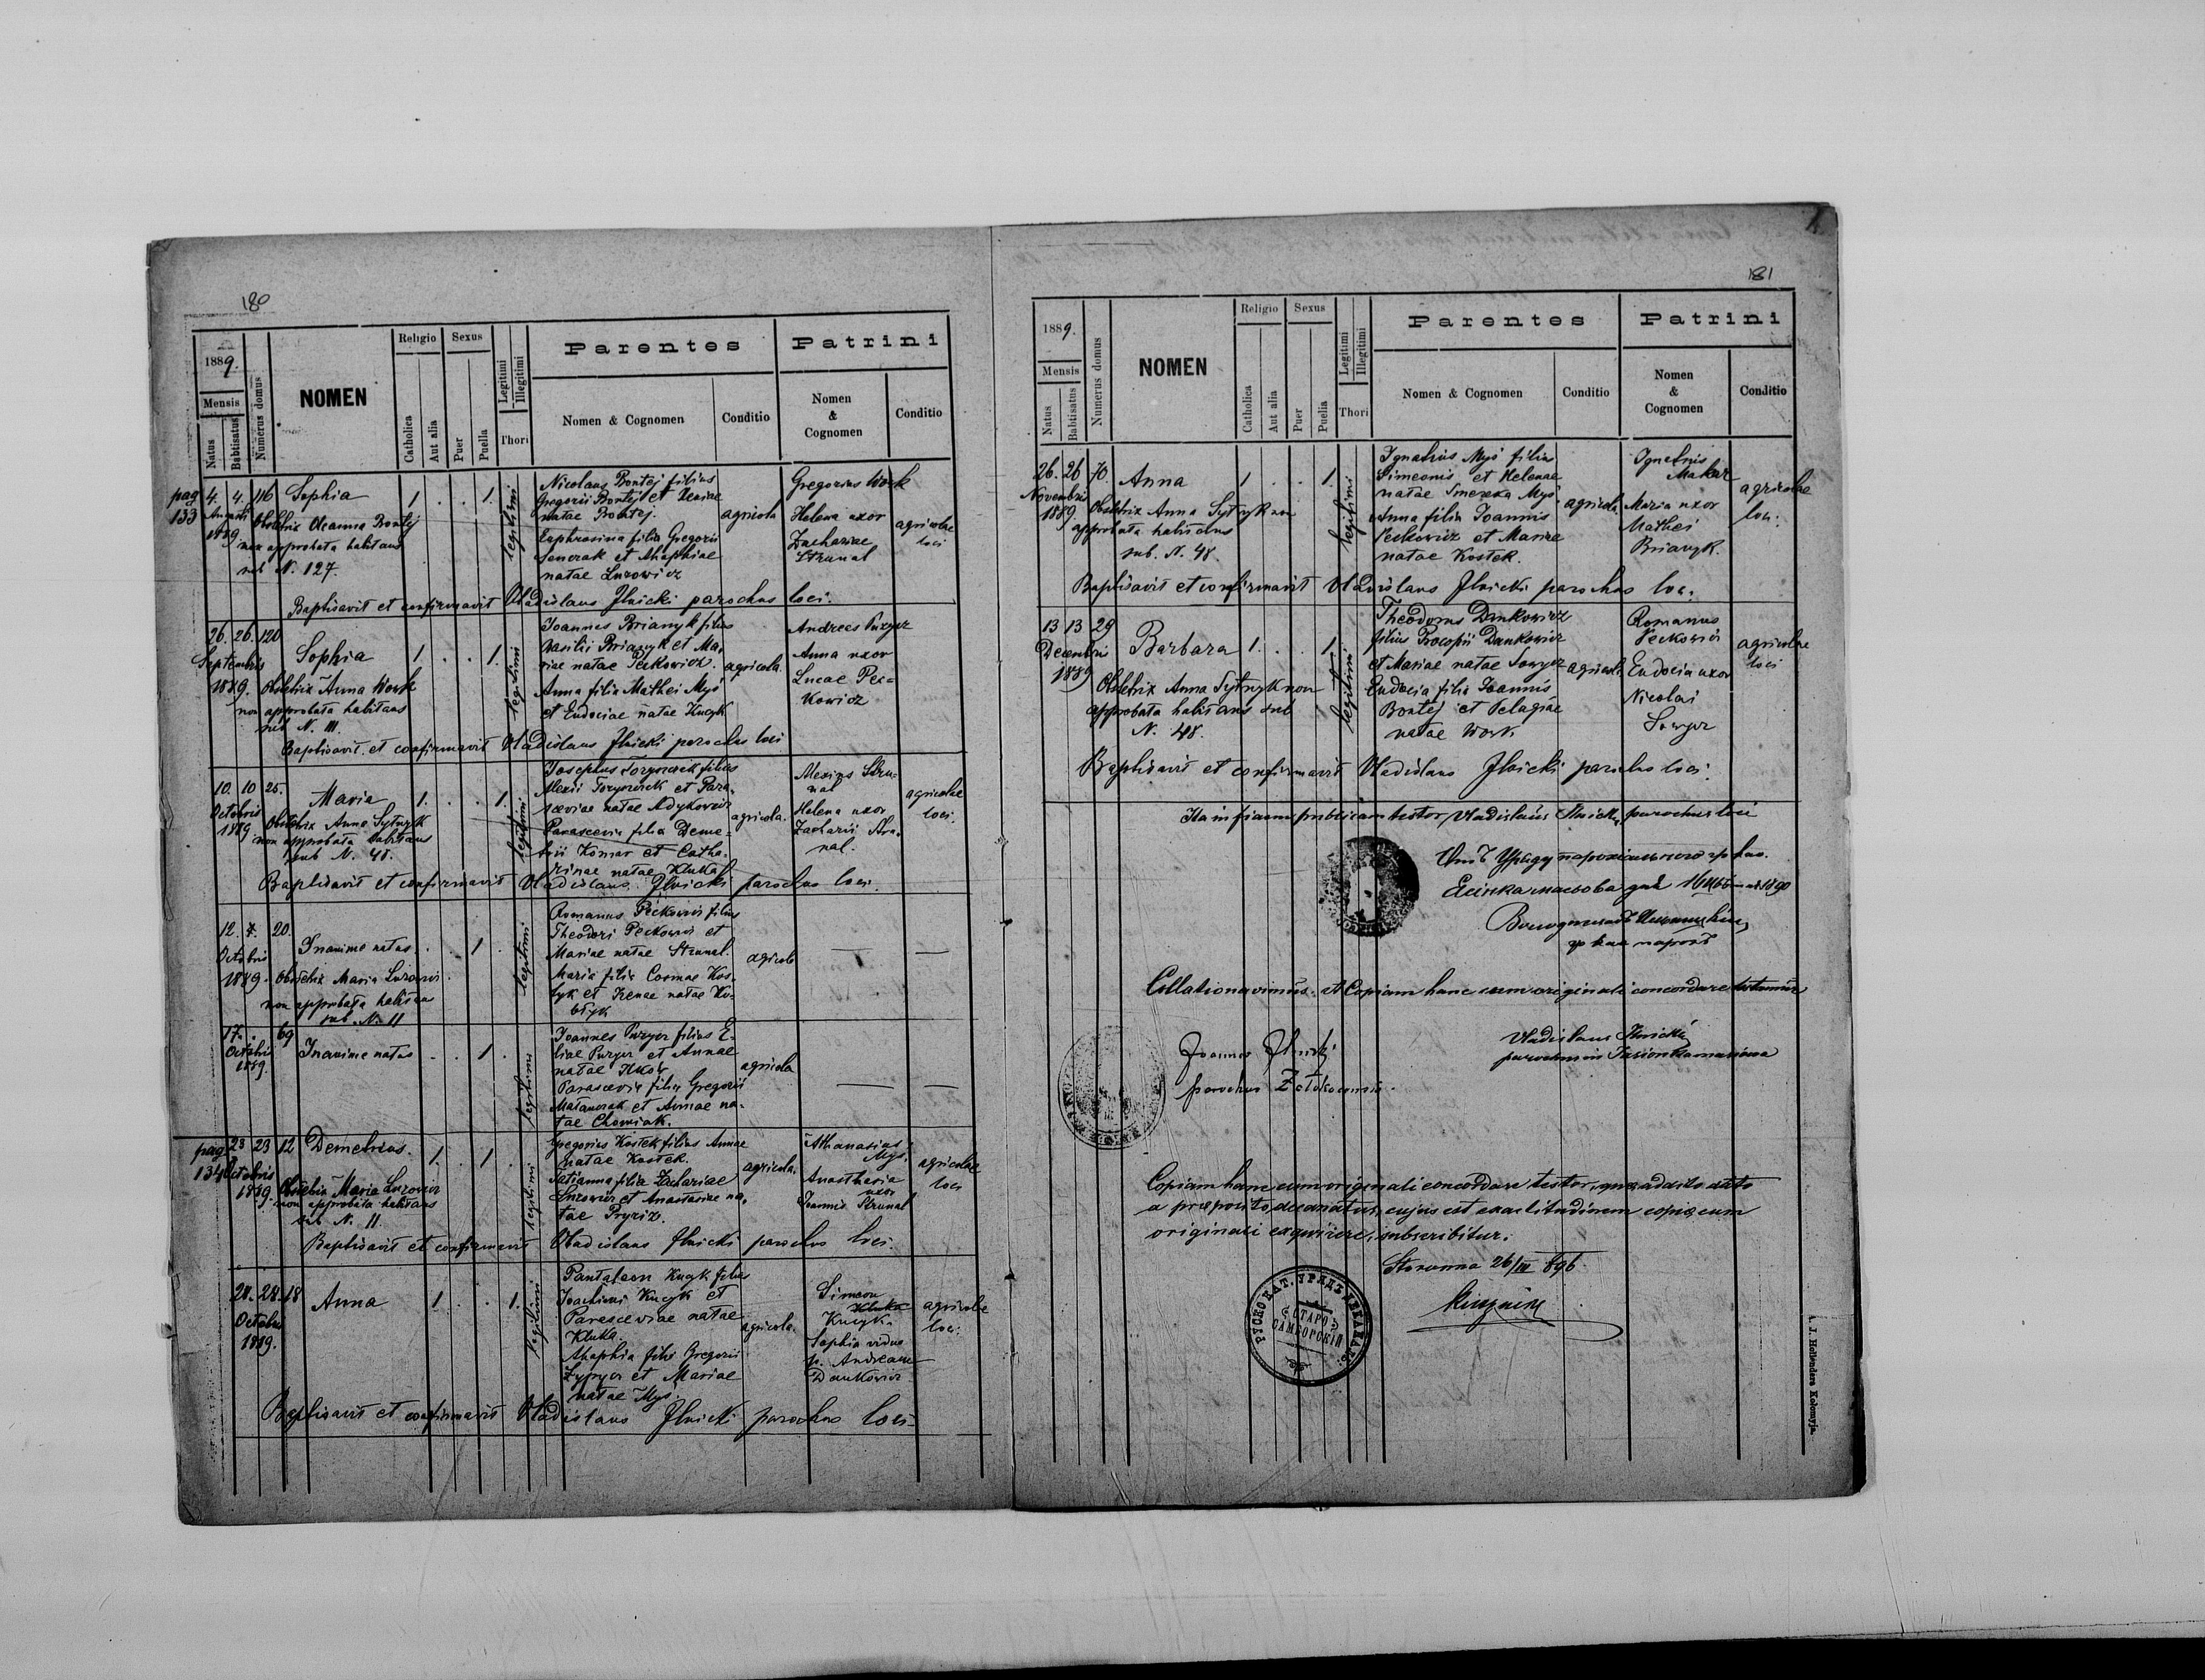 180
1889.
Mensis
Natus
Babtisatus
Numerus domus
NOMEN
Religio
Catholica
Aut alia
Sexus
Puer
Puella
Legitimi
Illegitimi
Thori
Parentes
Nomen & Cognomen
Conditio
Patrini
Nomen
&
Cognomen
Conditio
pag
133
4. 4. 116 Sophia 1 . . 1. legitimi
Augusti
1889
Obstetrix Oleanna Bontej
non approbata habitans
sub N. 127.
Nicolaus Bontej filius
Gregorii Bontej et Xeniae
natae Bontej.
Euphrosina filia Gregorii
et Ahaphiae
natae Lurowicz
agricola
Gregorius Work
Helena uxor
Zachariae
Strunal
agricolae
loci
Baptisavit et confirmavit Vladislaus Ilnicki parochus loci.
26. 26. 120 Sophia 1 . . 1. legitimi
Septembris
1889. Obstetrix Anna Work
non approbata habitans
sub N. 111.
Joannes Brianyk filius
Wasilii Brianyk et Ma-
riae natae Peckowicz.
Anna filia Mathei Myś
et Eudociae natae Kucyk
agricola.
Andreas Puzyer
Anna uxor
Lucae Pec=
kowicz
Baptisavit et confirmavit Vladislaus Ilnicki parochus loci
10. 10 25. Maria 1. . . 1. legitimi
Octobris
1889 Obstetrix Anna Sytnyk
non approbata habitans
sub N. 48.
Josephus filius
Alexii et Para-
sceviae natae
Parascevia filia Deme-
trii Komar et Catha-
rinae natae Kluka
agricola.
Alexius Stru-
nal
Helena uxor
Zacharii Stru-
nal.
agricolae
loci.
Baptisavit et confirmavit Vladislaus Ilnicki parochus loci.
12. 20. Inanime natus . . 1 . legitimi
Octobris
1889. Obstetrix Maria Lurowicz
non approbata habitans
sub N. 11
Romanus Peckowicz filius
Theodori Peckowicz et
Mariae natae Strunal.
Maria filia Cosmae Kos-
tyk et Irenae natae Ko-
btyk
agricola — —
17. . 69 Inanime natus . . 1 . legitimi
Octobris
1889.
Joannes Puzyer filius E-
liae Puzyer et Annae
natae
Parascevia filia Gregorii
et Annae na-
tae Chomiak.
agricola — —
pag
134
23 23 12 Demetrius. 1. . 1 . legitimi
Octobris
1889. Obstetrix Maria Lurowicz
non approbata habitans
sub N. 11.
Gregorius Kostek filius Annae
natae Kostek.
Tatianna filia Zachariae
Lurowicz et Anastasiae na-
tae Pryriz.
agricola.
Athanasius
Myś.
Anasthasia
uxor
Joannis Strunal
agricolae
loci
Baptisavit et confirmavit Vladislaus Ilnicki parochus loci.
28. 28. 18 Anna 1 . . 1. legitimi
Octobris
1889.
Pantaleon Kucyk filius
Joachimi Kucyk et
Parasceviae natae
Kluka.
Ahaphia filia Gregorii
et Mariae
natae Myś.
agricola.
Simeon
Kluka
Kucyk.
Sophia vidua
p. Andream
Dankowicz
agricolae
loci.
Baptisavit et confirmavit Vladislaus Ilnicki parochus loci.
181
1889.
Mensis
Natus
Babtisatus
Numerus domus
NOMEN
Religio
Catholica
Aut alia
Sexus
Puer
Puella
Legitimi
Illegitimi
Thori
Parentes
Nomen & Cognomen
Conditio
Patrini
Nomen
&
Cognomen
Conditio
26. 26 70. Anna 1 . . 1. legitimi
Novembris
1889 Obstetrix Anna Sytnyk non
approbata habitans
sub. N. 48.
Ignatius Myś filius
Simeonis et Helenae
natae Smereka Myś
Anna filia Joannis
Peckowicz et Mariae
natae Kostek.
agricola
Ignatius
Makar
Maria uxor
Mathei
Brianyk.
agricolae
loci.
Baptisavit et confirmavit Vladislaus Ilnicki parochus loci.
13 13 29 Barbara 1. . . 1. legitimi
Decembris
1889 Obstetrix Anna Sytnyk non
approbata habitans sub
N. 48.
Theodorus Dankowicz
filius Procopii Dankowicz
et Mariae natae
Eudocia filia Joannis
Bontej et Pelagiae
natae Work
agricola
Romanus
Peckowicz
Eudocia uxor
Nicolai
agricolae
loci
Baptisavit et confirmavit Vladislaus Ilnicki parochus loci.
Ita in fidem publicam testor, Vladislaus Ilnicki, parochus loci
Collationavimus et Copiam hanc cum originali concordare testamur
Joannes Ilnicki
parochus
Vladislaus Ilnicki
Copiam hanc cum originali concordare testor, quo addito dato
a praeposito decanatus, cujus est exactitudinem copiae cum
originali exquirere, subscribitur.
26/III 896.
РУСКО КАТ. УРЯДЪ ДЕКАНАЛ.
СТАРО
САМБОРСКІЙ
A. J. Hollendera Kołomyja.